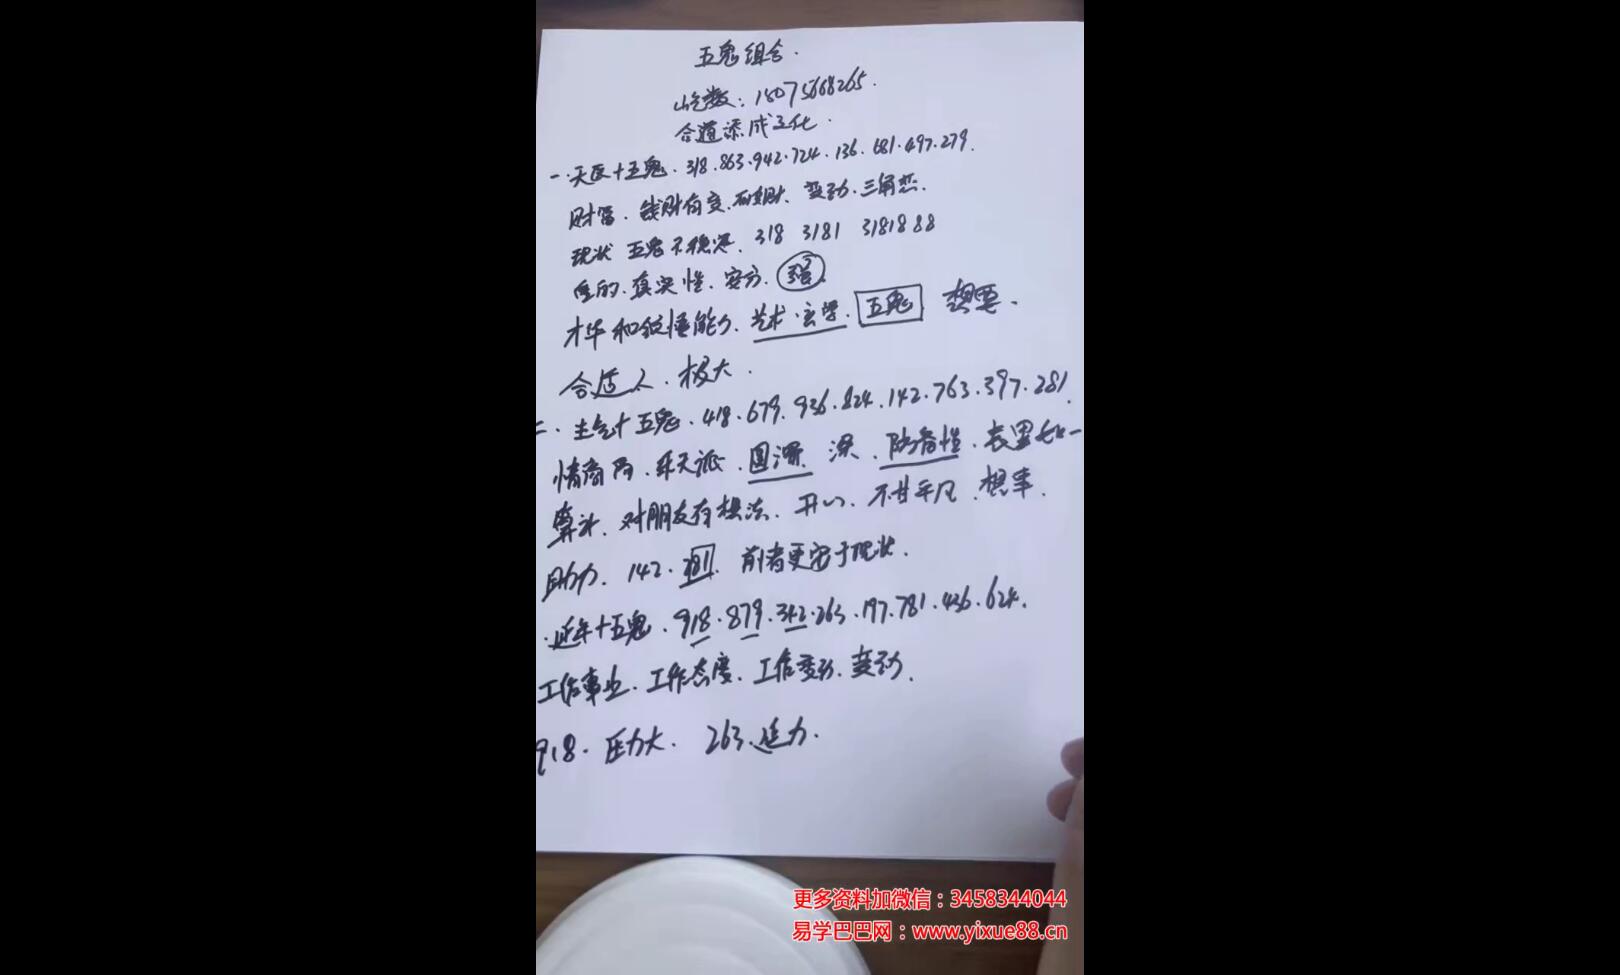 五鬼组合.
数: 15075668265.
合道添成立化.
一.天医+五鬼. 318.863.942.724.136.681.497.279.
财富. 钱财有变. 破财. 变动. 三角恋.
现状 五鬼不稳定. 318 3181 3181888
真实性. 安分.
才华和能力. 艺术.玄学. 五鬼 想要.
合适人. 极大.
二.生气+五鬼. 418.679.936.824.142.763.397.281.
情商高. 乐天派. 圆滑 深. 防备性. 表里如一
算计. 对朋友有想法. 开心. 不甘平凡. 想事.
助力. 142. 281. 前者更安于现状.
.延年+五鬼. 918.879.342.263.197.781.436.624.
工作事业. 工作态度. 工作变动. 变动.
918. 压力大. 263.
更多资料加微信：3458344044
易学巴巴网：www.yixue88.cn